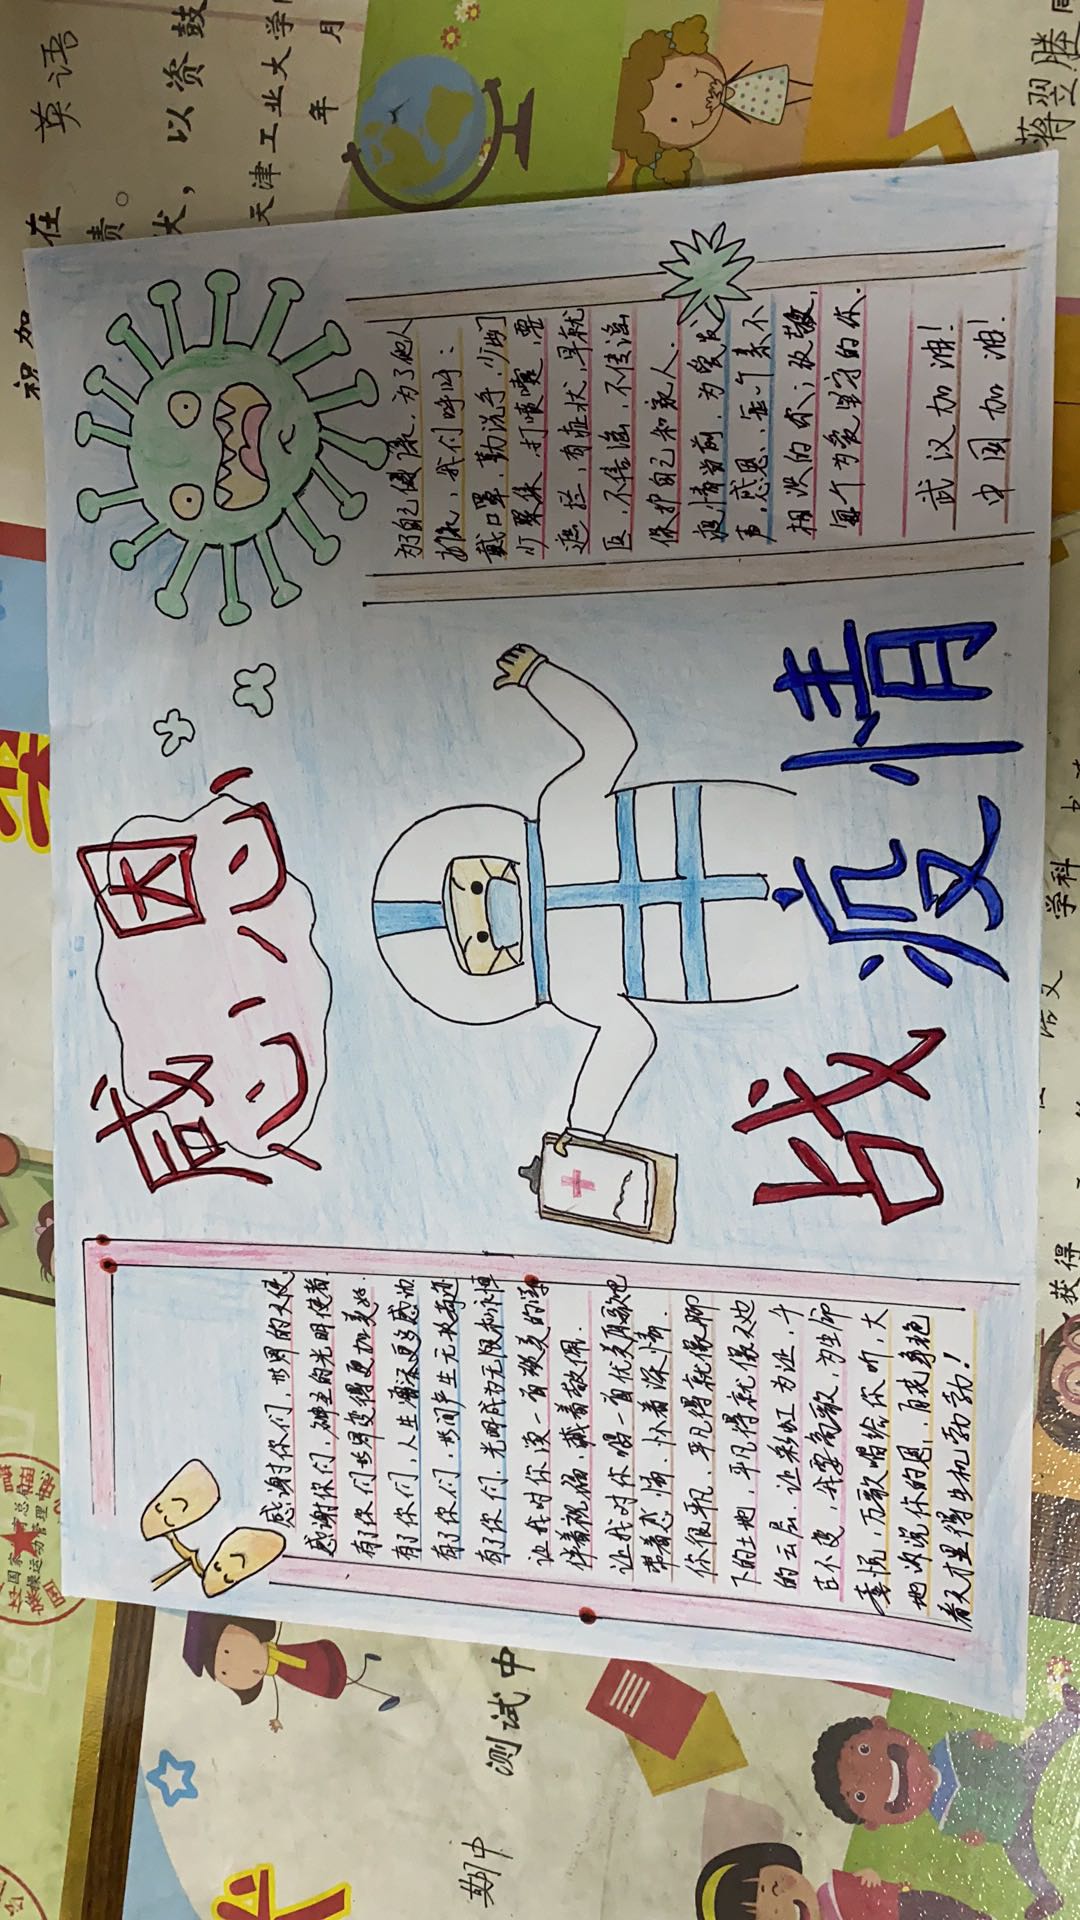 感恩
战疫情
感谢你们，世界的天使.
感谢你们，神圣的光明使者.
有了你们世界变得更加美好.
有了你们，人生
有了你们，世间产生无数奇迹
有了你们，光明成为无限和永恒
让我对你读一首
伴着祝福，藏着敬佩.
让我对你唱一首优美的歌吧
带着感情、怀着深情.
你很平凡，平凡得就像脚
下的土地，平凡得就像天边
的云层，让彩虹为证，千
古不变，我要高歌，为生命
喜悦，万歌唱给你听，大
地沉淀你的恩，白衣身袍
着天才显得生机勃勃！
为自己健康，为了他人
健康，我们呼吁：
戴口罩，勤洗手，少出门
少聚集，打喷嚏，要
遮拦，有症状，早就
医，不信谣，不传谣
保护自己和家人.
疫情当前，为爱发
声，感恩，每一个素不
相识的你；致敬，
每个为爱坚守的你.
武汉加油！
中国加油！
英语
在
祝贺
绩。
状，以资鼓
天津工业大学
年 月
蒋翌塍
学科
获得
测试中
期中